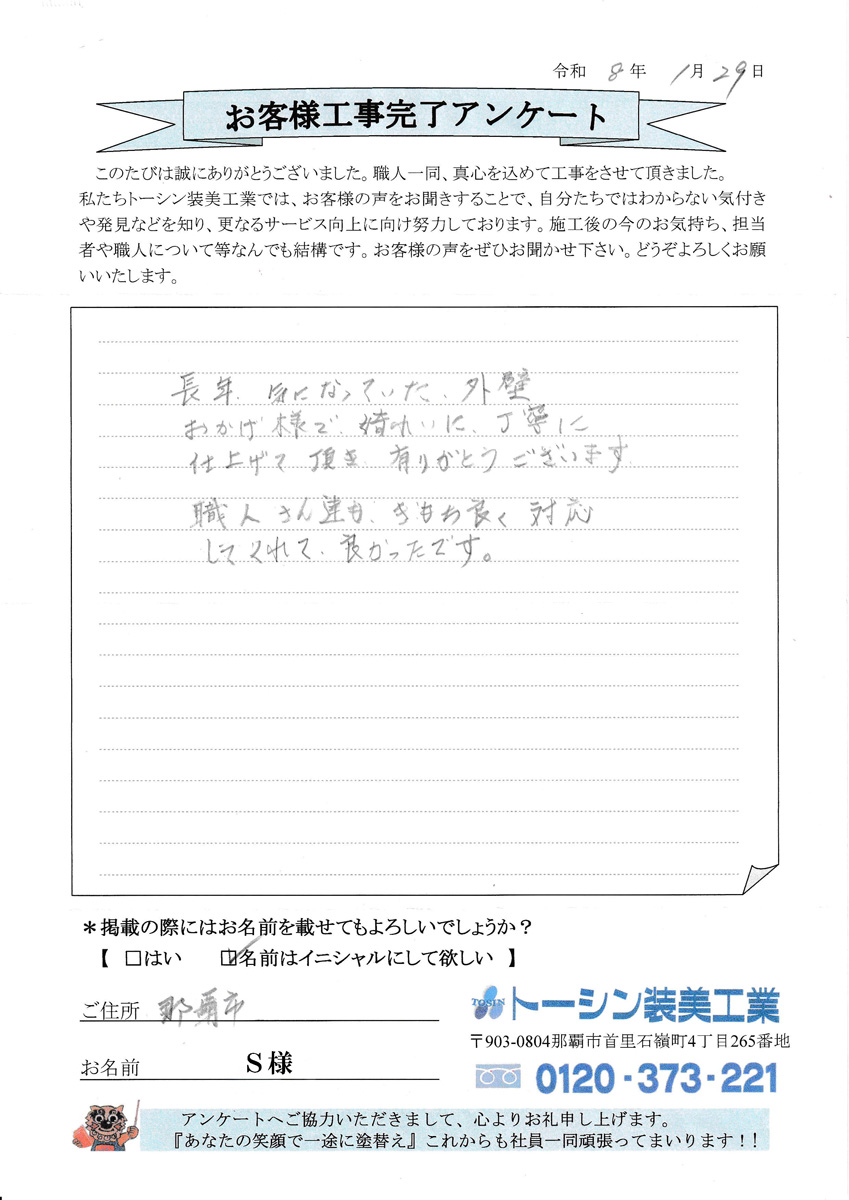 令和 8年 1月29日
お客様工事完了アンケート
このたびは誠にありがとうございました。職人一同、真心を込めて工事をさせて頂きました。
私たちトーシン装美工業では、お客様の声をお聞きすることで、自分たちではわからない気付き
や発見などを知り、更なるサービス向上に向け努力しております。施工後の今のお気持ち、担当
者や職人について等なんでも結構です。お客様の声をぜひお聞かせ下さい。どうぞよろしくお願
いいたします。
長年、気になっていた、外壁
おかげ様で、綺れいに、丁寧に
仕上げて頂き、有りがとうございます
職人さん達も、きもち良く対応
してくれて、良かったです。
＊掲載の際にはお名前を載せてもよろしいでしょうか？
【 □はい ☑名前はイニシャルにして欲しい 】
ご住所 那覇市
お名前 S様
TOSIN トーシン装美工業
〒903-0804那覇市首里石嶺町4丁目265番地
0120-373-221
アンケートへご協力いただきまして、心よりお礼申し上げます。
『あなたの笑顔で一途に塗替え』これからも社員一同頑張ってまいります！！